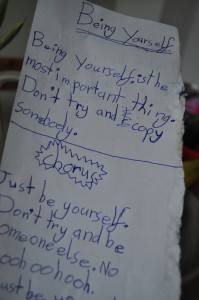 Being Yourself
Being Yourself.is the
most.important.thing.
Don't try and copy
somebody.
Chorus
Just be yourself.
Don't try and be
omeone else. No
ooh ooh ooh.
ust be you